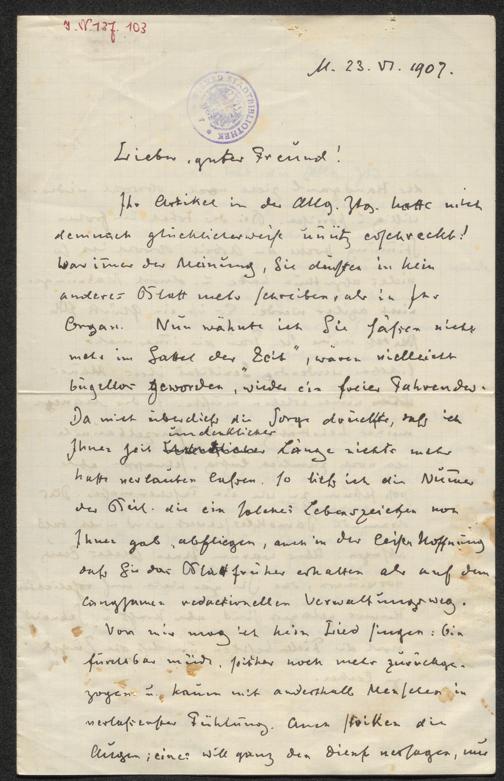 J. N 137. 103
WIENER STADTBIBLIOTHEK
M. 23. VI. 1907.
Lieber, guter Freund!
Ihr Artikel in der Allg. Ztg. hatte mich
demnach glücklicherweise unnütz erschreckt!
War immer der Meinung, Sie dürften in kein
anderes Blatt mehr schreiben, als in Ihr
Organ. Nun wähnte ich Sie säßen nicht
mehr im Sattel der „Zeit", wären vielleicht
bügellos geworden, wieder ein freier Fahrender.
Da mich überdies die Sorge drückte, daß ich
undenklicher
Ihnen seit Länge nichts mehr
hatte verlauten lassen. So ließ ich die Nummer
der Zeit. die ein solches Lebenszeichen von
Ihnen gab, abfliegen, auch in der leisen Hoffnung
daß Sie das Blatt früher erhalten als auf dem
langsamen redactionellen Verwaltungsweg.
Von mir mag ich kein Lied singen: bin
furchtbar müde, später noch mehr zurückge-
zogen u. kaum mit anderthalb Menschen in
Fühlung. Auch streiken die
Augen; eines will ganz den Dienst versagen, nur